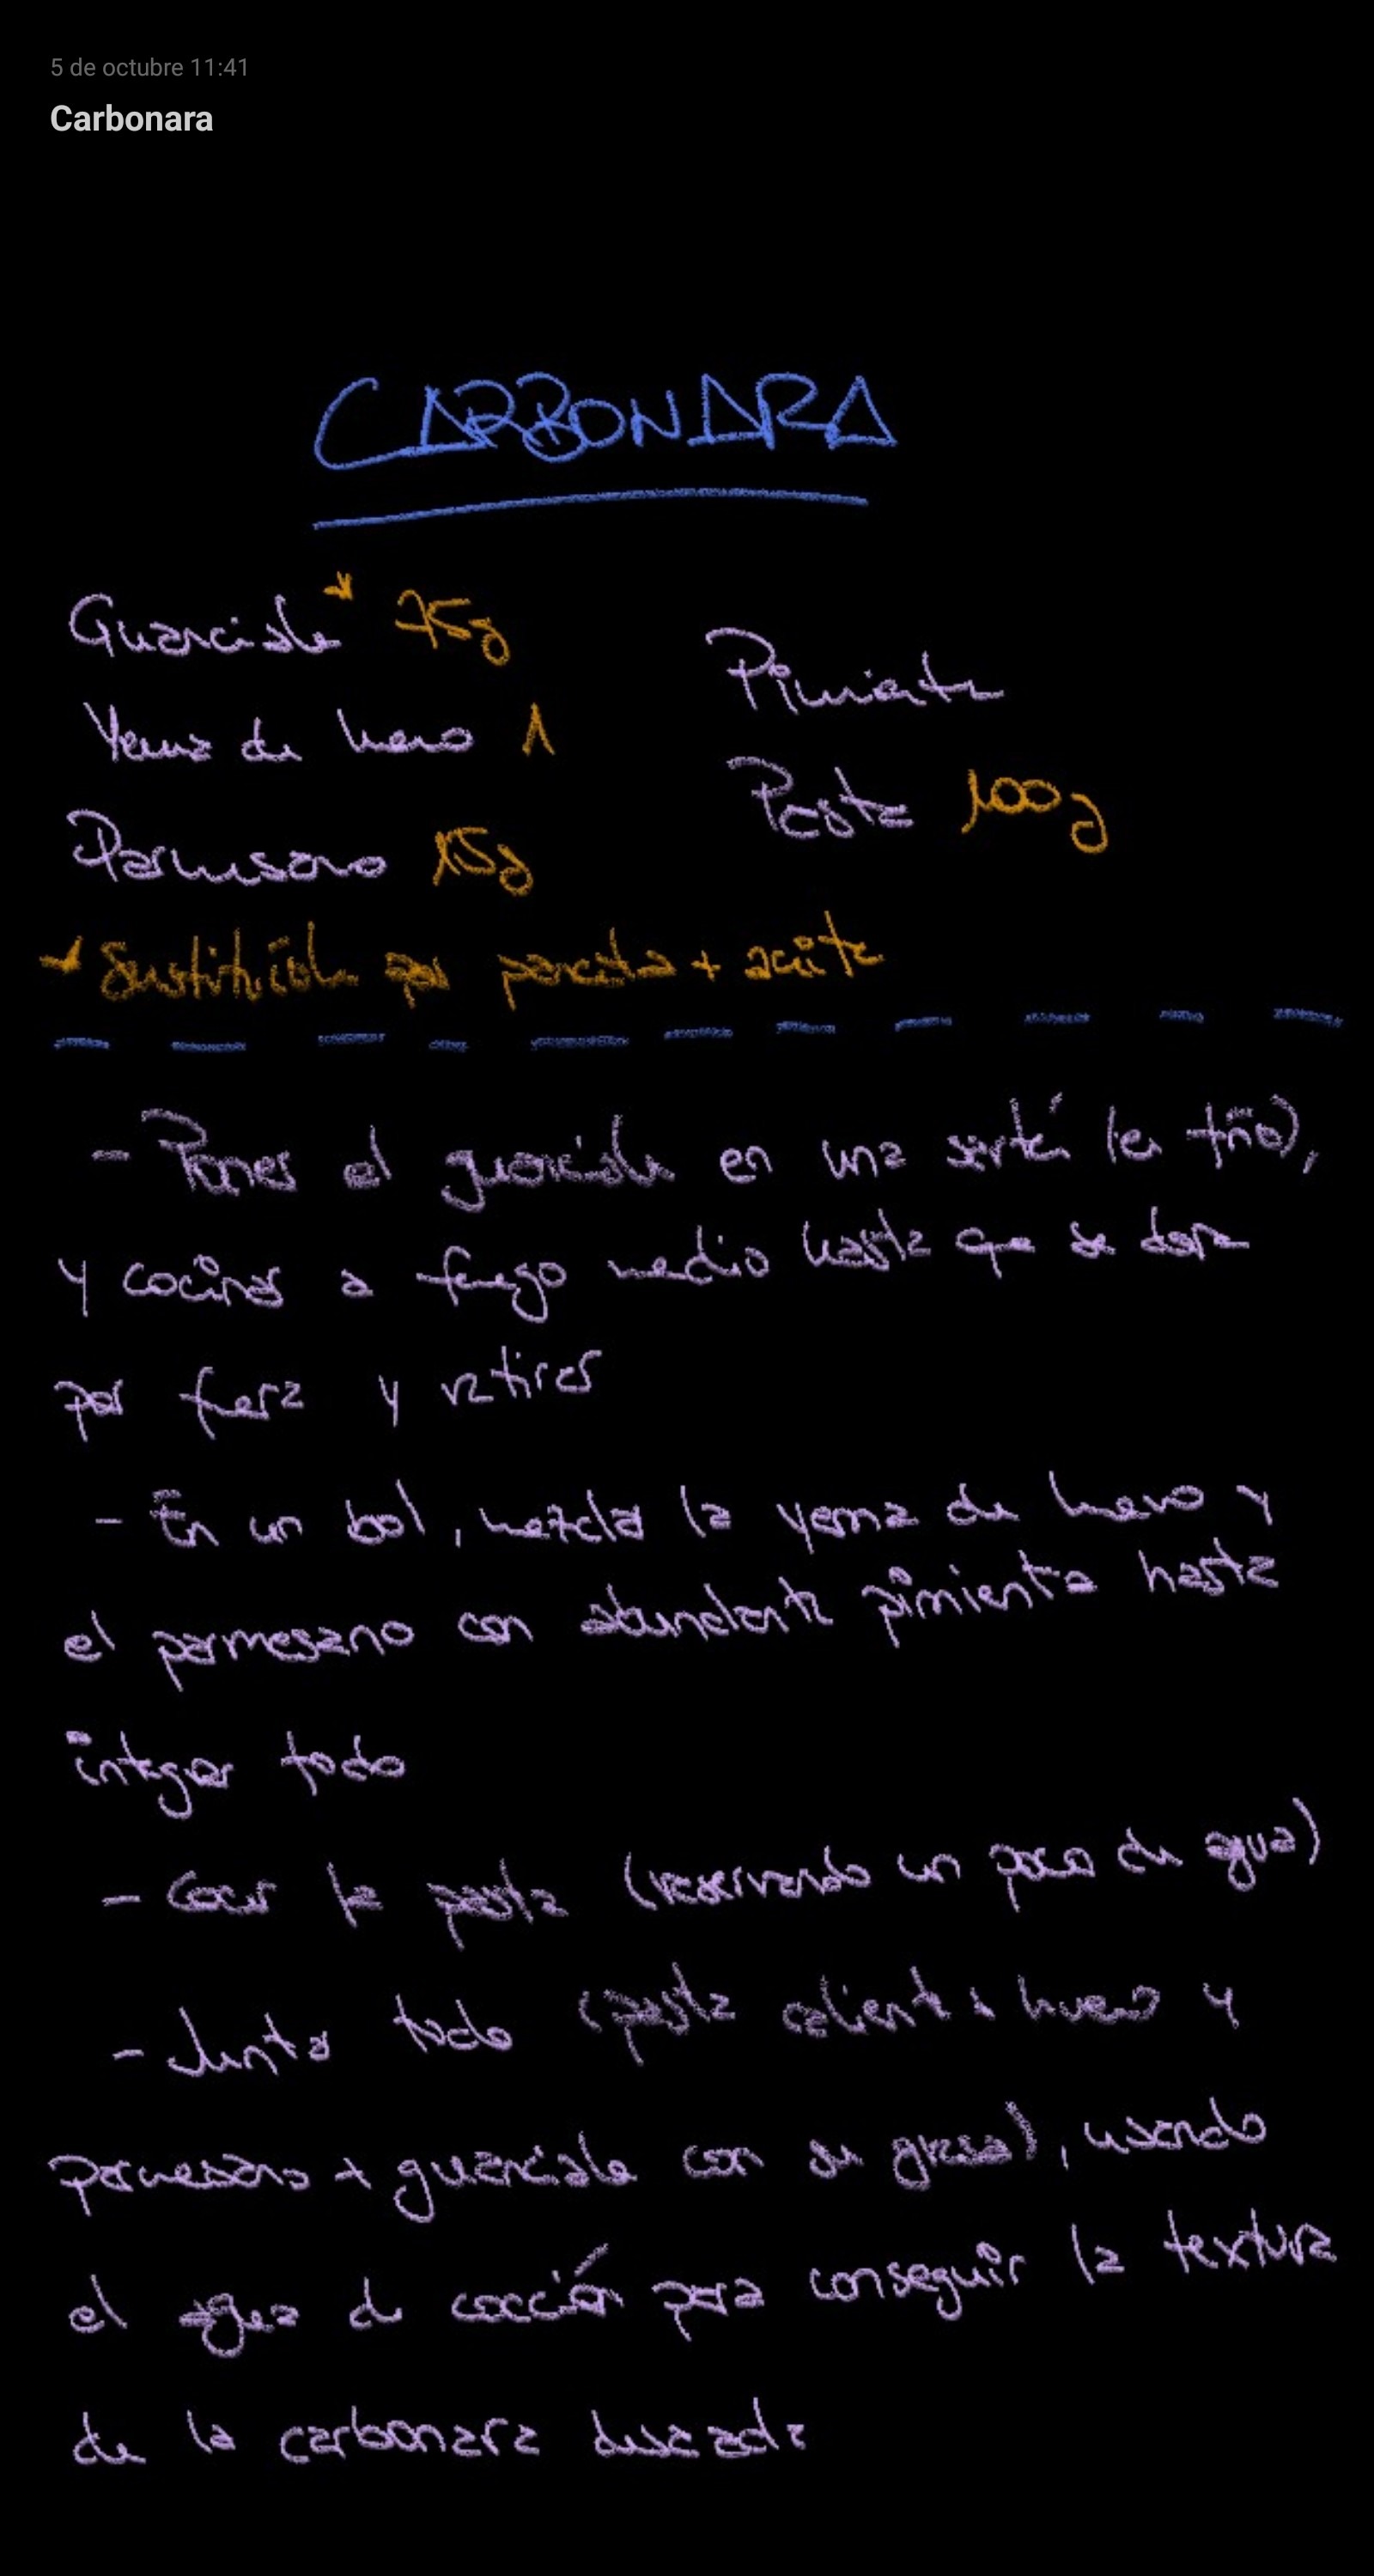 5 de octubre 11:41
Carbonara
CARBONARA
Guanciale* 75g
Yema de huevo 1
Parmesano 15g
Pimienta
Pasta 100g
* Sustituible por panceta + aceite
- Poner el guanciale en una sartén (en frío),
y cocinar a fuego medio hasta que se dore
por fuera y retirar
- En un bol, mezclar la yema de huevo y
el parmesano con abundante pimienta hasta
integrar todo
- Cocer la pasta (reservando un poco de agua)
- Juntar todo (pasta caliente + huevo y
parmesano + guanciale con su grasa), usando
el agua de cocción para conseguir la textura
de la carbonara deseada